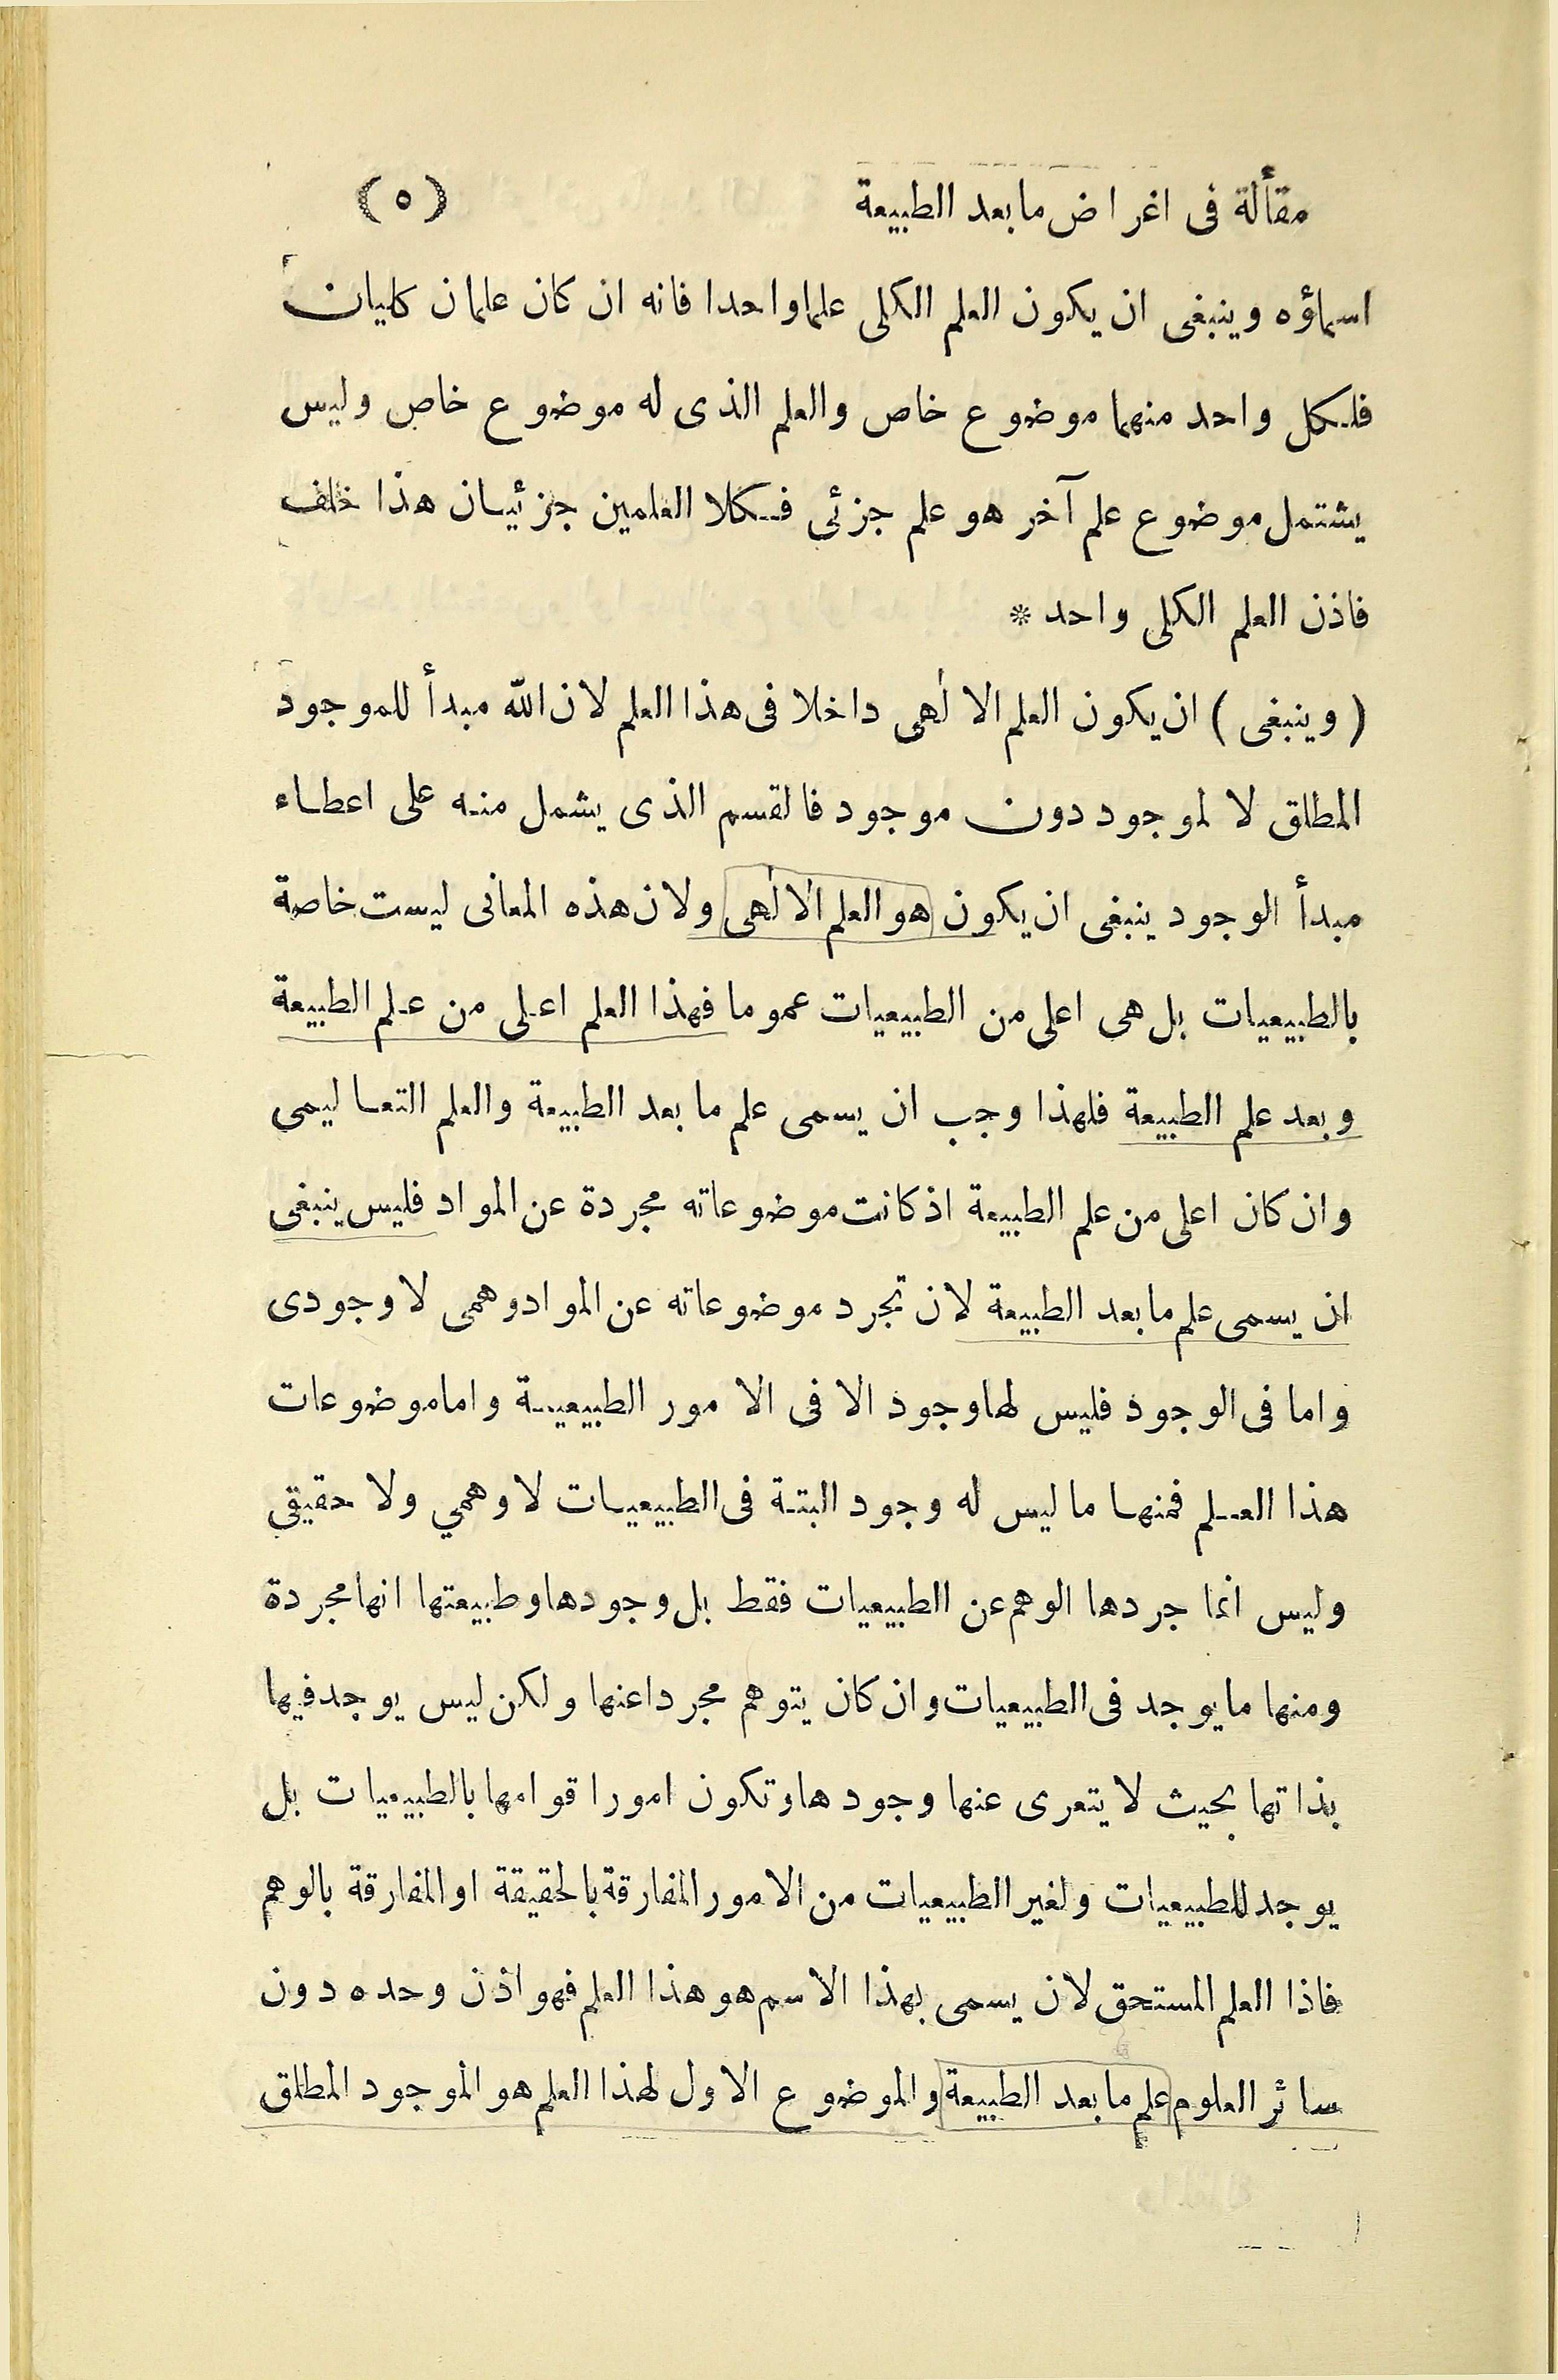 مقألة فى اغراض مابعد الطبيعة (٥)
اسماؤه وينبغى ان يكون العلم الكلى علما واحدا فانه ان كان علمان كليان
فلكل واحد منهما موضوع خاص والعلم الذى له موضوع خاص وليس
يشتمل موضوع علم آخر هو علم جزئى فكلا العلمين جزئيان هذا خلف
فاذن العلم الكلى واحد *
(وينبغى) ان يكون العلم الالٰهى داخلا فى هذا العلم لان الله مبدأ للموجود
المطلق لا لموجود دون موجود فالقسم الذى يشمل منه على اعطاء
مبدأ الوجود ينبغى ان يكون هو العلم الالٰهى ولان هذه المعانى ليست خاصة
بالطبيعيات بل هى اعلى من الطبيعيات عموما فهذا العلم اعلى من علم الطبيعة
وبعد علم الطبيعة فلهذا وجب ان يسمى علم ما بعد الطبيعة والعلم التعاليمى
وان كان اعلى من علم الطبيعة اذ كانت موضوعاته مجردة عن المواد فليس ينبغى
ان يسمى علم مابعد الطبيعة لان تجرد موضوعاته عن المواد وهمى لا وجودى
واما فى الوجود فليس لها وجود الا فى الامور الطبيعية واما موضوعات
هذا العلم فمنها ما ليس له وجود البتة فى الطبيعيات لا وهمي ولا حقيقي
وليس انما جردها الوهم عن الطبيعيات فقط بل وجودها وطبيعتها انها مجردة
ومنها ما يوجد فى الطبيعيات وان كان يتوهم مجردا عنها ولكن ليس يوجد فيها
بذاتها بحيث لا يتعرى عنها وجودها وتكون امورا قوامها بالطبيعيات بل
يوجد للطبيعيات ولغير الطبيعيات من الامور المفارقة بالحقيقة او المفارقة بالوهم
فاذا العلم المستحق لان يسمى بهذا الاسم هو هذا العلم فهو اذن وحده دون
سائر العلوم علم مابعد الطبيعة والموضوع الاول لهذا العلم هو الموجود المطلق